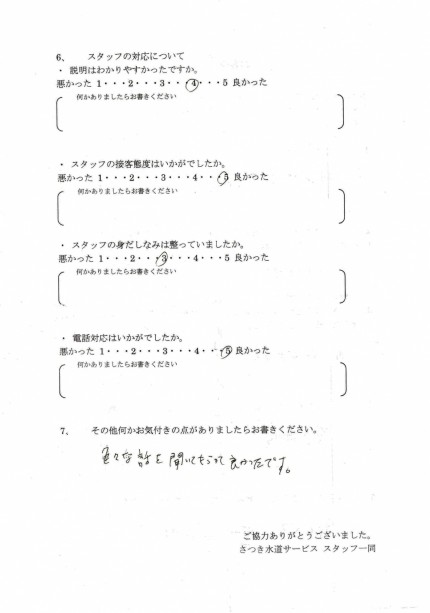 6、 スタッフの対応について
・ 説明はわかりやすかったですか。
悪かった 1・・・2・・・3・・・4・・・5 良かった
何かありましたらお書きください
・ スタッフの接客態度はいかがでしたか。
悪かった 1・・・2・・・3・・・4・・・5 良かった
何かありましたらお書きください
・ スタッフの身だしなみは整っていましたか。
悪かった 1・・・2・・・3・・・4・・・5 良かった
何かありましたらお書きください
・ 電話対応はいかがでしたか。
悪かった 1・・・2・・・3・・・4・・・5 良かった
何かありましたらお書きください
7、 その他何かお気付きの点がありましたらお書きください。
色々な話を聞いてもらって良かったです。
ご協力ありがとうございました。
さつき水道サービス スタッフ一同